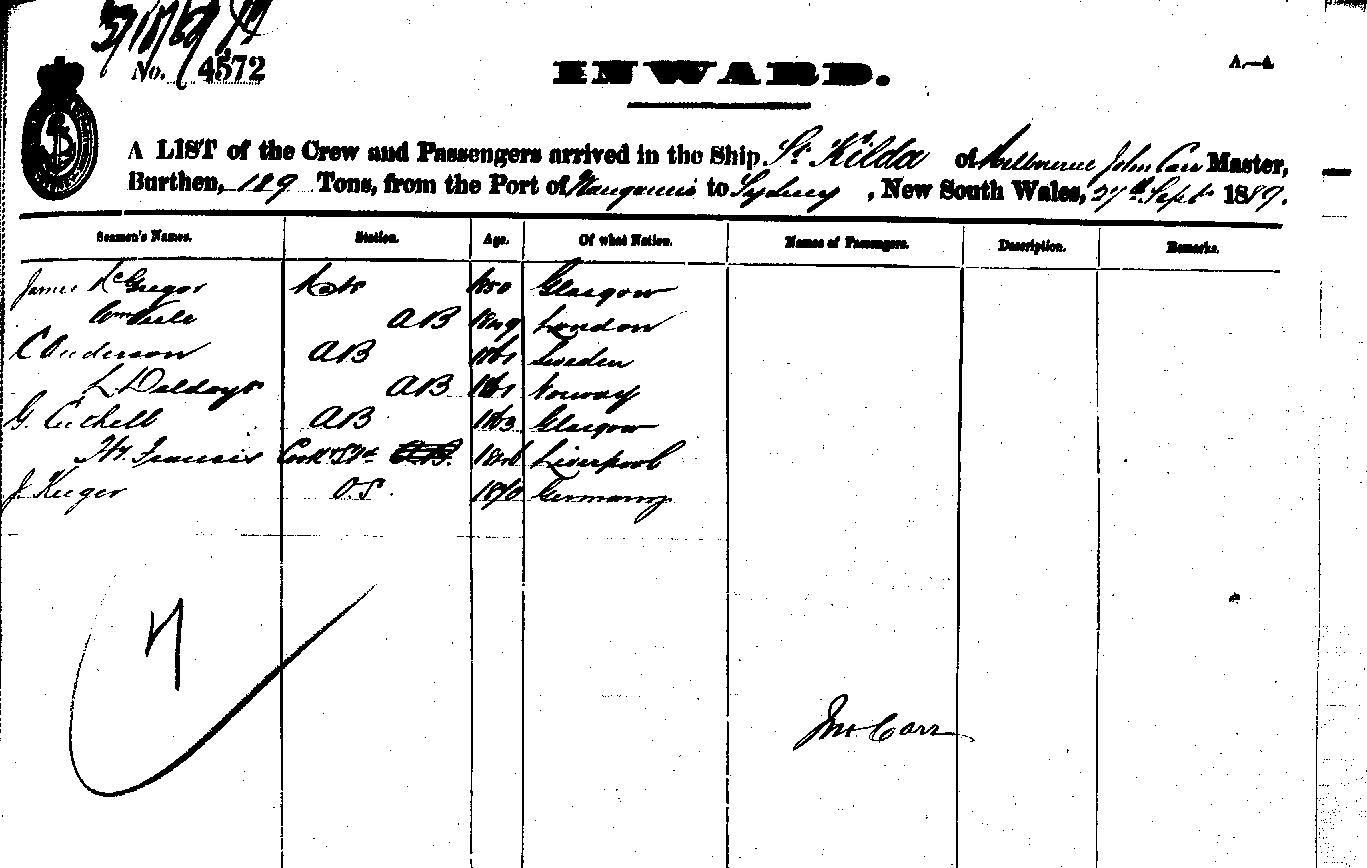 No. 4572
INWARD.
A.—A
A LIST of the Crew and Passengers arrived in the Ship St. Kilda of Melbourne John Carr Master,
Burthen, 189 Tons, from the Port of to Sydney, New South Wales, 27th Sept 1889.
Seamen's Names. Station. Age. Of what Nation. Names of Passengers. Description. Remarks.
James McGregor Mate 1850 Glasgow
Wm AB London
C Anderson AB 1861 Sweden
L AB 1861 Norway
G. AB 1863 Glasgow
Francis Cook & Std Liverpool
J Kruger O.S. 1870 Germany
7
Jno Carr